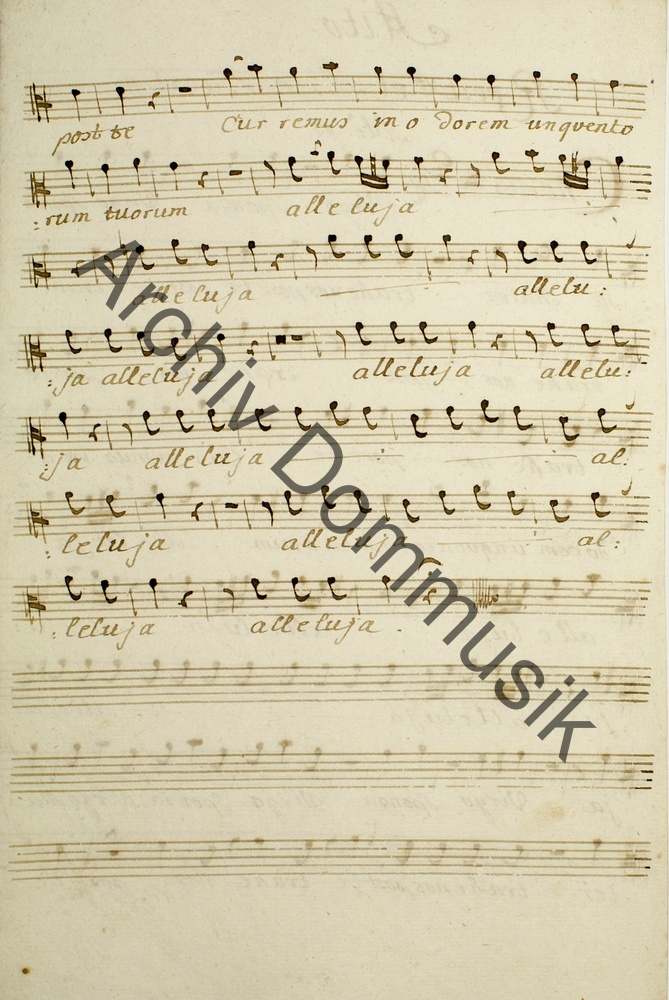 post te Cur remus in o dorem unquento
:rum tuorum alleluja
alleluja allelu:
:ja alleluja alleluja allelu:
:ja alleluja al:
:leluja alleluja al:
:leluja alleluja.
Archiv Dommusik